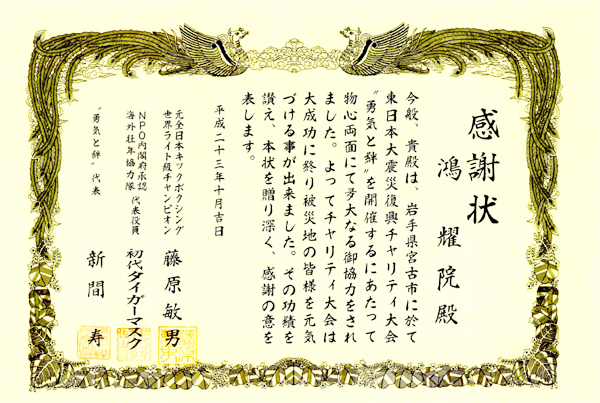 感謝状
鴻耀院殿
今般、貴殿は、岩手県宮古市に於て
東日本大震災復興チャリティ大会
〝勇気と絆〟を開催するにあたって
物心両面にて多大なる御協力をされ
ました。よってチャリティ大会は
大成功に終り被災地の皆様を元気
づける事が出来ました。その功績を
讃え、本状を贈り深く、感謝の意を
表します。
平成二十三年十月吉日
元全日本キックボクシング
世界ライト級チャンピオン
藤原敏男
NPO内閣府承認
海外壮年協力隊 代表役員
初代タイガーマスク
〝勇気と絆〟代表
新間 寿